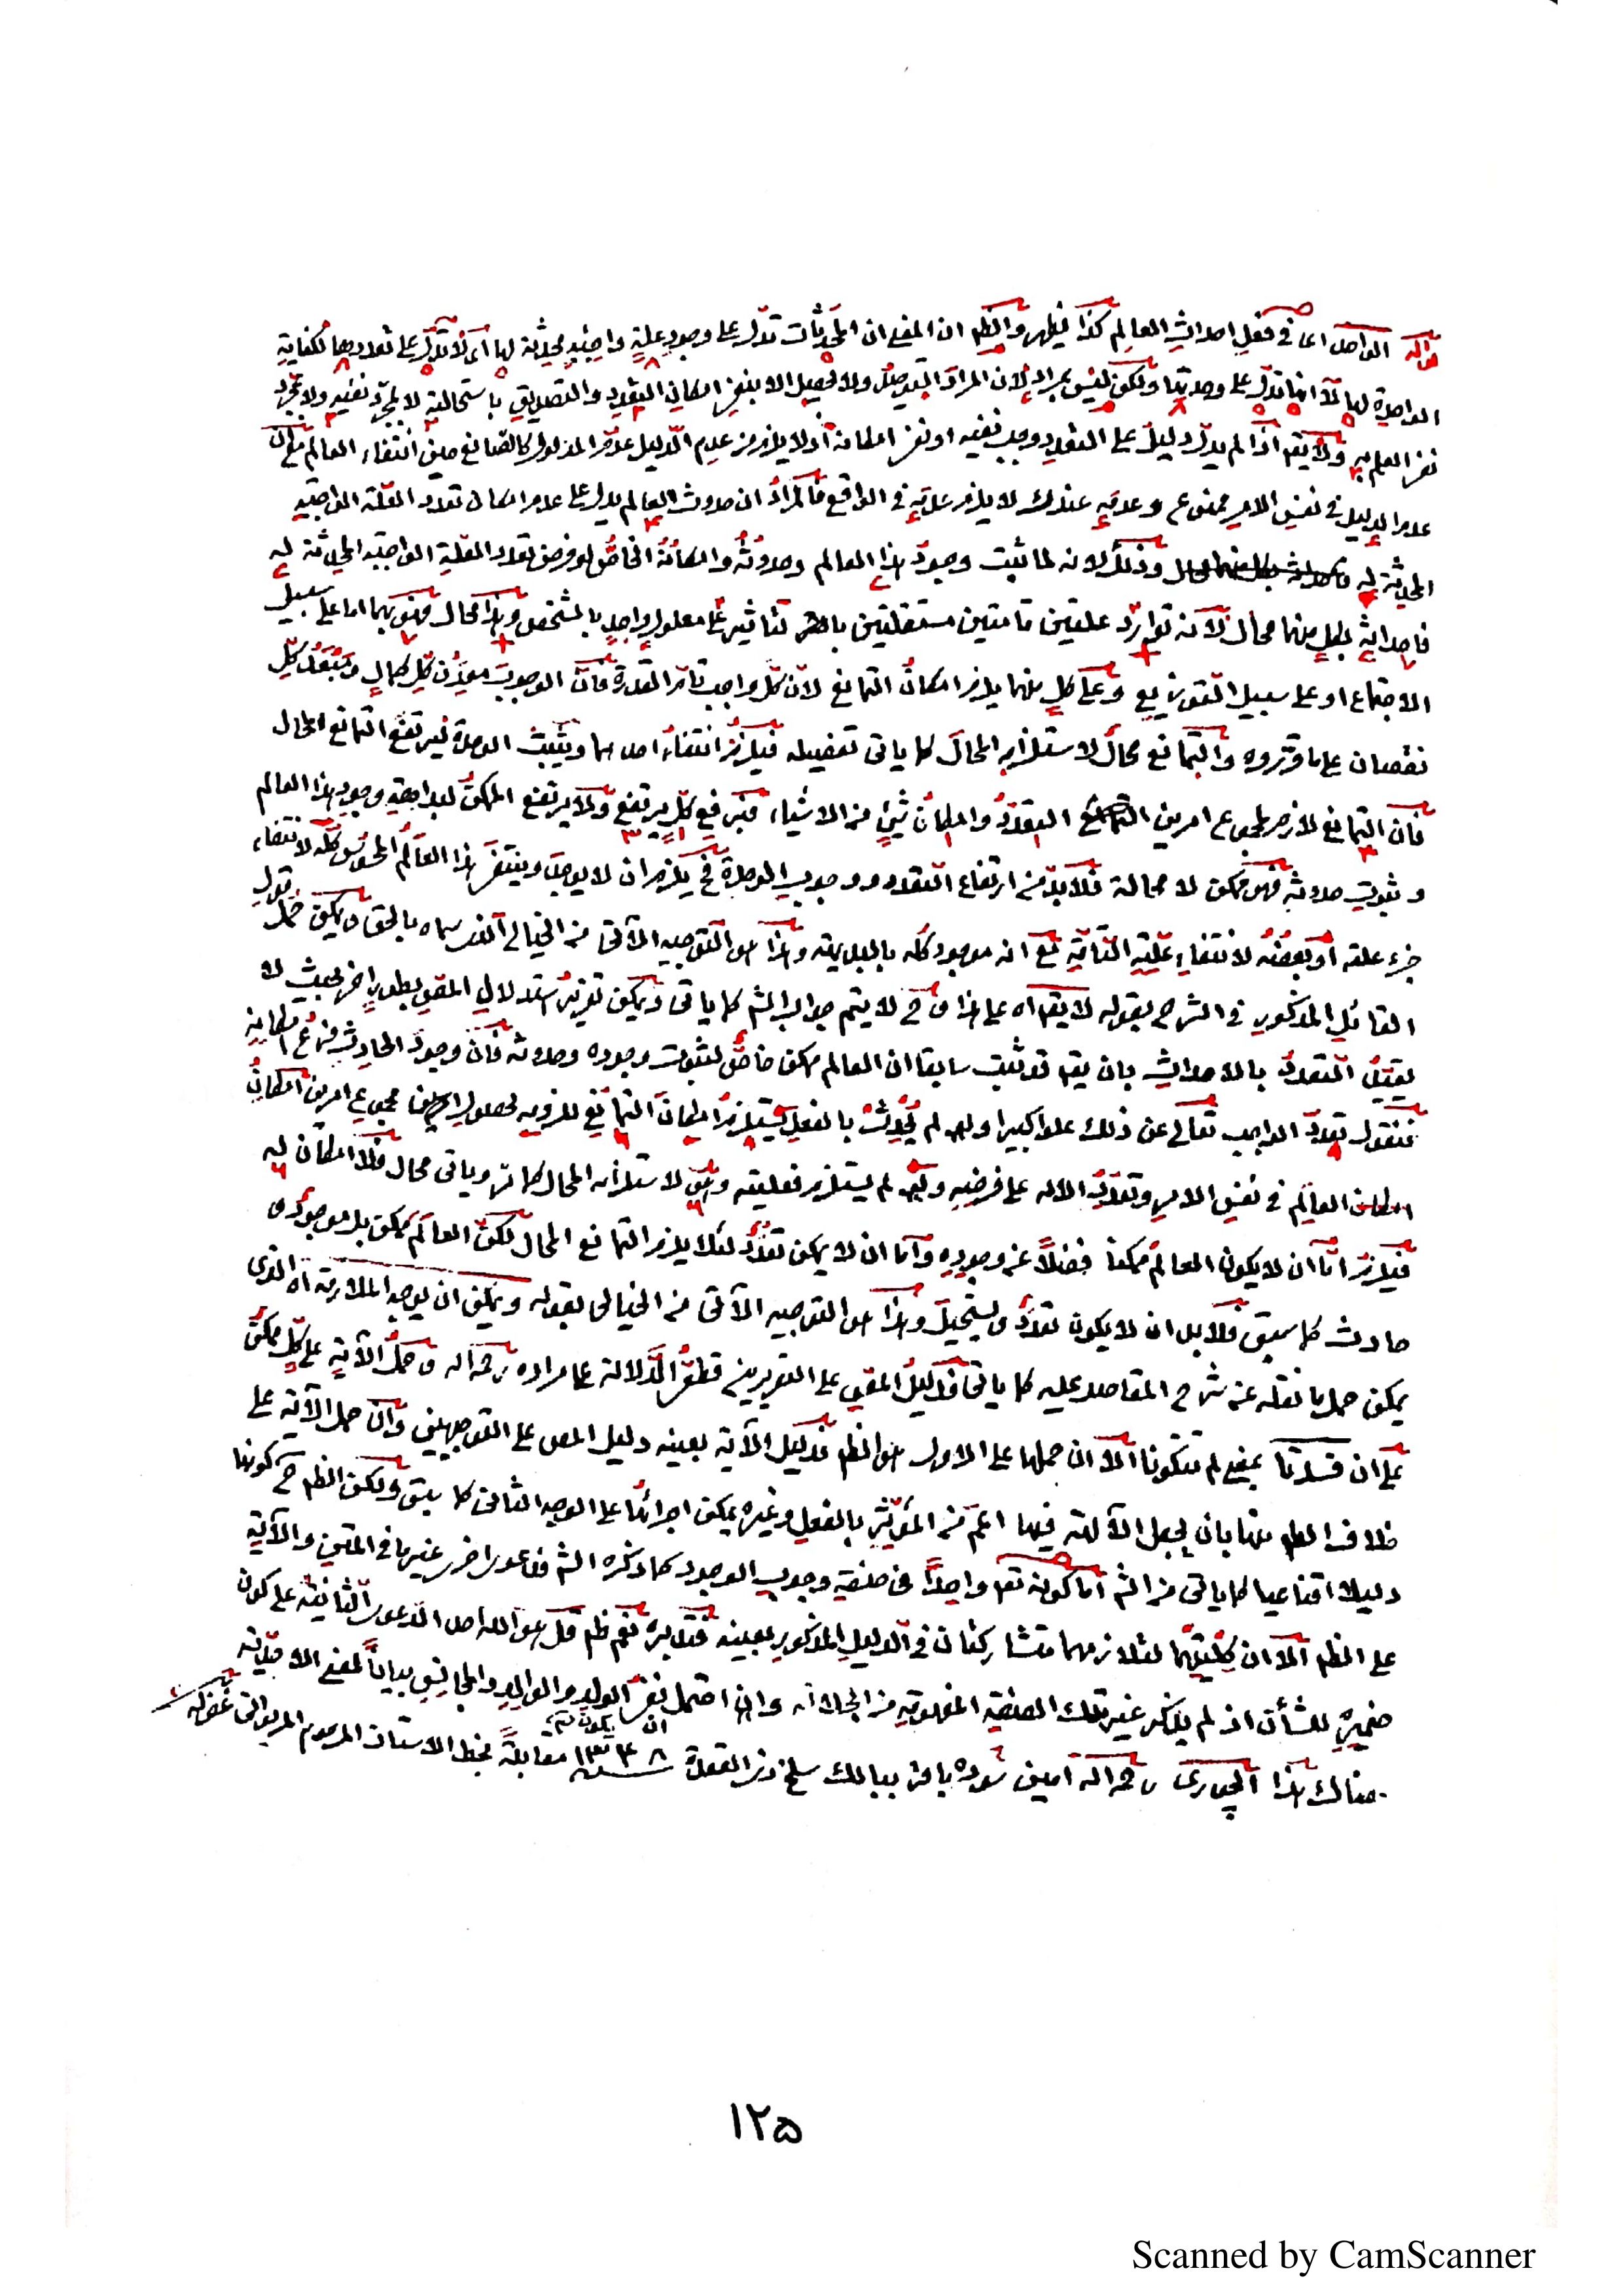 قوله الواحد اى فى فعل احداث العالم كذا يظهر والظم ان المعنى ان المحدثات تدل على وجود علة واجبية محدثة لها اى لا تدل على تعددها لكفاية
الواحدة لها لا انها تدل على وحدتها ولكن ليس بمراد لان المراد التوحيد ولا يحصل الا بنفى امكان التعدد والتصديق باستحالته لا بمجرد نفيه ولا بمجرد
نفى العلم به ولا يقم اذا لم يدل دليل على التعدد وجب نفيه او نفى امكانه اذ لا يلزم من عدم الدليل عدم المدلول كالصانع حين انتفاء العالم مع ان
عدم الدليل فى نفس الامر ممنوع وعدمه عندك لا يلزم عدمه فى الواقع فالمراد ان حدوث العالم يدل على عدم امكان تعدد العلة الواجبية
المحدثة له وذلك لانه لما ثبت وجود هذا العالم وحدوثه وامكانه الخاص لو فرض تعدد العلة الواجبية المحدثة له
فاحداثه بكل منهما محال لانه توارد علتين تامتين مستقلتين بالتأثير على معلول واحد بالشخص وهذا محال فهو بهما اما على سبيل
الاجتماع او على سبيل التوزيع وعلى كل منهما يلزم امكان التمانع لان كل واجب تام القدرة فان الوجوب معدن كل كمال ومبعد كل
نقصان على ما قرروه والتمانع محال لاستلزامه المحال كما يأتى تفصيله فيلزم انتفاء احدهما ويثبت الوحدة فيرتفع التمانع المحال
فان التمانع لازم لمجموع امرين التعدد وامكان شئ من الاشياء فبرفع كل يرتفع ولا يرتفع الممكن لبداهة وجود هذا العالم
وثبوت حدوثه فهو ممكن لا محالة فلا بد من ارتفاع التعدد ووجوب الوحدة فح يلزم ان لا يوجد وينتفى هذا العالم المحسوس كله لانتفاء
جزء علته او بعضه لانتفاء علته التامة مع انه موجود كله بالبداهة وهذا هو التوجيه الآتى من الخيالى الذى سماه بالحق ويمكن حمل قول
القائل المذكور فى الشرح بقوله لا يقم اه على هذا وح لا يتم جواب الشم كما يأتى ويمكن تقرير استدلال المص بطور اخر بحيث لا
يقيد التعدد بالاحداث بان يقم قد ثبت سابقا ان العالم ممكن خاص لثبوت وجوده وحدوثه فان وجود الحادث فرع امكانه
فنقول تعدد الواجب تعالى عن ذلك علوا كبيرا ولو لم يحدث بالفعل يستلزم امكان التمانع للزومه لحصول مجموع امرين امكان
العالم فى نفس الامر وتعدد الاله على فرضه وكيف لم يستلزم فعليته وهو لاستلزامه المحال كما مر ويأتى محال فلا امكان له
فيلزم اما ان لا يكون العالم ممكنا فضلا عن وجوده واما ان لا يمكن تعدد لئلا يلزم التمانع المحال لكن العالم ممكن بل موجود
حادث كما سبق فلا بد ان لا يكون تعدد ويستحيل وهذا هو التوجيه الآتى من الخيالى بقوله ويمكن ان يوجه الملازمة اه الذى
يمكن حمل ما نقله عن شرح المقاصد عليه كما يأتى فدليل المص على التقريرين قطعى الدلالة على مراده رحمه اله وحمل الآية على كل ممكن
على ان فسدتا بمعنى لم تتكونا الا ان حملها على الاول هو الظم فدليل الآية بعينه دليل المص على التوجيهين وان حمل الآية على
خلاف الظم منها بان يجعل الآلهة فيها اعم من المؤثر بالفعل وغيره يمكن اجراؤها على الوجه الثانى كما سبق ولكن الظم ح كونها
دليلا اقناعيا كما يأتى من الشم اما كونه تعم واحدا فى صفة وجوب الوجود كما ذكره الشم فدعوى اخرى غير ما فى المتن والآية
على الظم الا ان كلتيهما لتلازمهما متشاركتان فى الدليل المذكور بعينه فتدبره نعم ظم قل هو الله احد الدعوى الثانية على كون
ضمير للشأن اذ لم يذكر غير تلك الصفة المفهومة من الجلالة وان احتمل ان يكون نفى الولد والوالد والمجانس بيانا لمعنى الاحدية
هناك هذا الجورى رحمه اله آمين سوده باقر ببالك سلخ ذى القعدة سنه ١٣٣٨ مقابلة بخط الاستاذ المرحوم المريوانى غفر له
١٢٥
Scanned by CamScanner